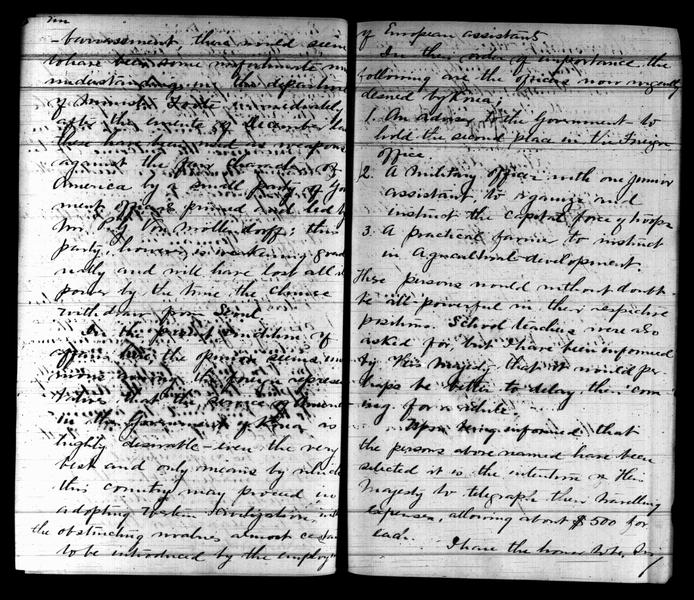 -barrassment, there would seem
to have been some unfortunate
understandings in the department
of Foote immediately
after the events of December
there have been
against the fair character of
America by a small party of
ment officers primed and led
Mr. P. G. Von Mollendorff; this
party, however is weakening
and will have lost all
power by the time the Chinese
withdraw from Seoul
In the present condition of
affairs here the opinion seems
among the foreign
that the service of
in the Government of Korea is
highly desirable - even the very
best and only means by which
this country may proceed in
adopting Western civilization,
the obstructing almost
to be introduced by the
of European assistants
In their order of importance the
following are the officers now urgently
desired by Korea,
1. An adviser to the Government to
hold the second place in the Foreign
office.
2. A military officer with one junior
assistant, to organize and
instruct the capital force of troops
3. A practical farmer to instruct
in Agricultural development.
These persons would without doubt
be all powerful in their respective
positions. School teachers were also
asked for, but I have been informed
by His Majesty that it would per-
haps be better to delay their com-
ing for a while.
Upon being informed that
the persons above named have been
selected it is the intention of His
Majesty to telegraph their travelling
expenses, allowing about $500 for
each.
I have the honor to be, Sir,